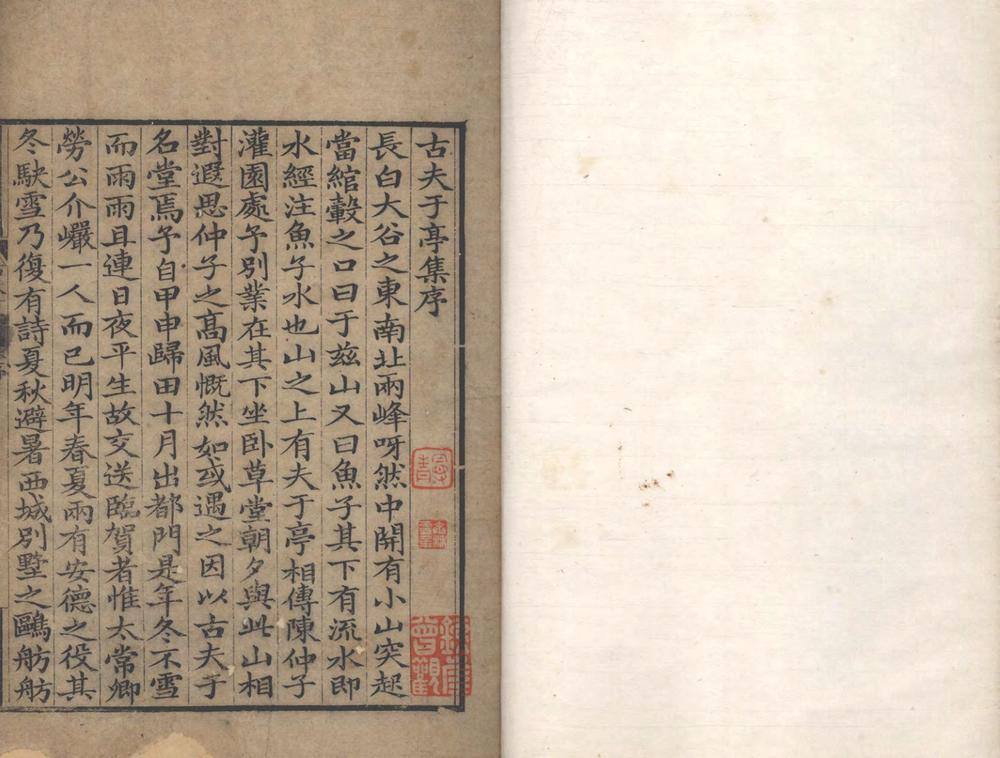 古夫于亭集序
長白大谷之東南北兩峰呀然中開有小山突起
當綰轂之口曰于茲山又曰魚子其下有流水即
水經注魚子水也山之上有夫于亭相傳陳仲子
灌園處予別業在其下坐臥草堂朝夕與此山相
對遐思仲子之高風慨然如或遇之因以古夫于
名堂焉予自甲申歸田十月出都門是年冬不雪
而雨雨且連日夜平生故交送臨賀者惟太常卿
勞公介巖一人而已明年春夏兩有安德之役其
冬駃雪乃復有詩夏秋避暑西城別墅之鷗舫舫